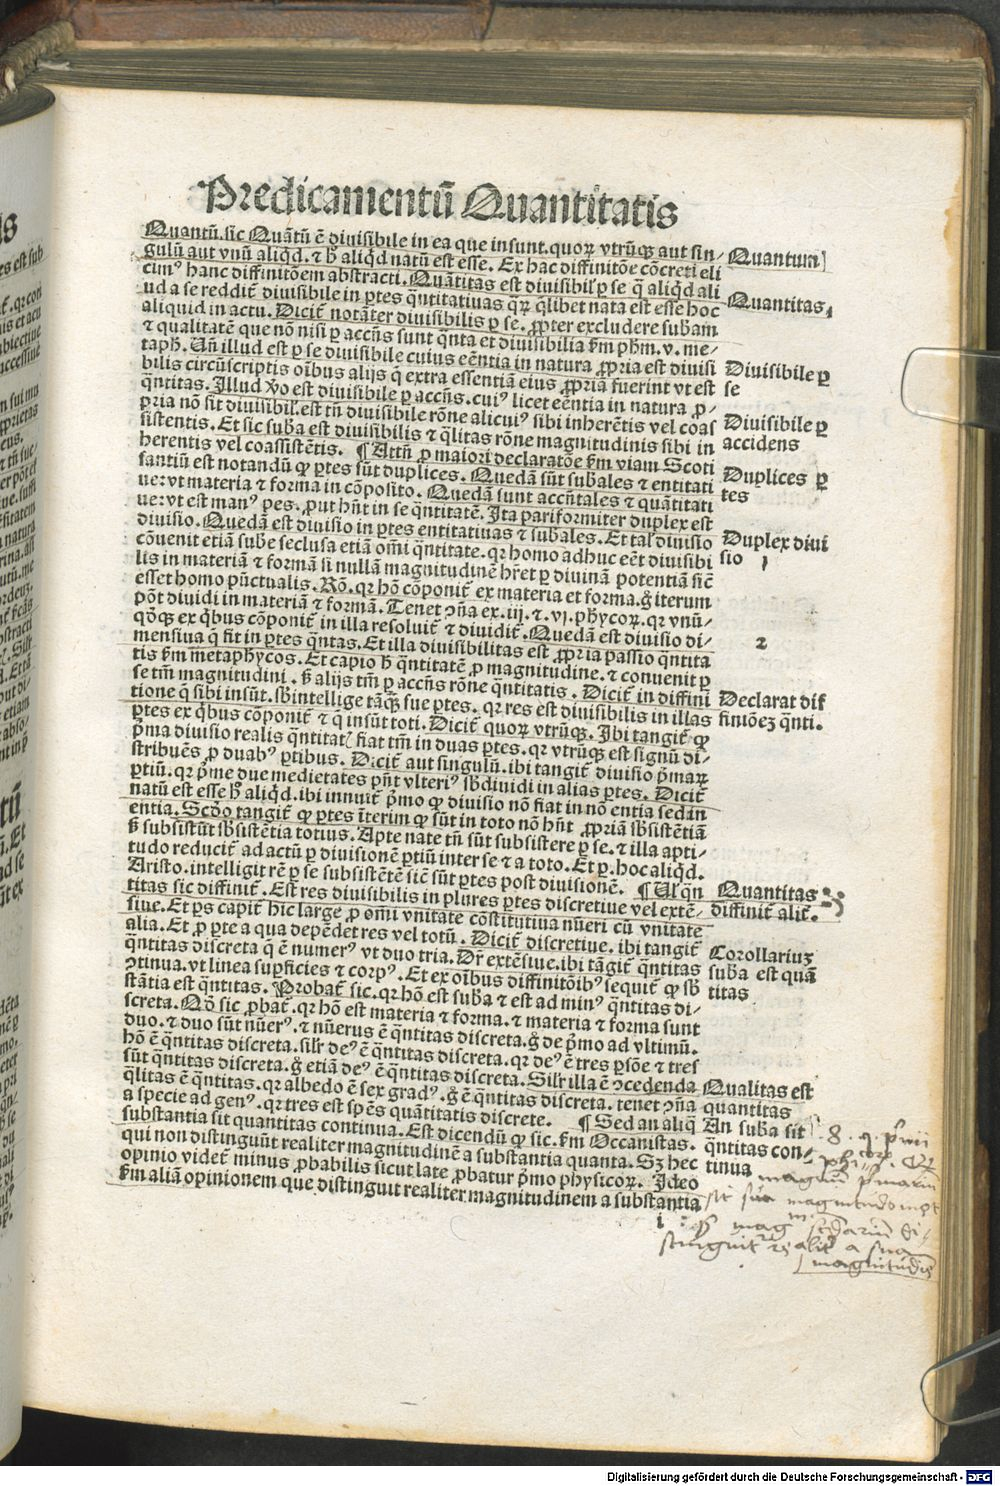 Predicamentū Quantitatis
Quantū. sic Quātū ē diuisibile in ea que insunt. quoꝝ vtrūqꝫ aut sin⸗
gulū aut vnū aliqd. ⁊ hͦ aliqd natū est esse. Ex hac diffinitōe cōcreti eli
cimꝰ hanc diffinitōem abstracti. Quātitas est diuisibil' ꝑ se q̄ aliqd ali
ud a se reddit̄ diuisibile in ꝑtes q̄ntitatiuas q̄ꝝ q̄libet nata est esse hoc
aliquid in actu. Dicit̄ notāter diuisibilis ꝑ se. ꝓpter excludere sub̄am
⁊ qualitatē que nō nisi ꝑ accn̄s sunt q̄nta et diuisibilia ẜm ph̄m. v. me⸗
taph̄. Un̄ illud est ꝑ se diuisibile cuius eēntia in natura ꝓpria est diuisi
bilis circūscriptis oībus alijs q̄ extra essentiā eius ꝓpria fuerint vt est
q̄ntitas. Illud v̊o est diuisibile ꝑ accn̄s. cuiꝰ licet eēntia in natura ꝓ⸗
pria nō sit diuisibil'. est tn̄ diuisibile rōne alicuiꝰ sibi inherētis vel coas
sistentis. Et sic sub̄a est diuisibilis ⁊ q̄litas rōne magnitudinis sibi in
herentis vel coassistētis. ¶ Attn̄ ꝓ maiori declaratōe ẜm viam Scoti
santiū est notandū ꝙ ꝑtes sūt duplices. Quedā sūt sub̄ales ⁊ entitati
ue: vt materia ⁊ forma in cōposito. Quedā sunt accn̄tales ⁊ quātitati
ue: vt est manꝰ pes. ꝓut hn̄t in se q̄ntitatē. Ita pariformiter duplex est
diuisio. Quedā est diuisio in ꝑtes entitatiuas ⁊ sub̄ales. Et tal' diuisio
cōuenit etiā sub̄e seclusa etiā om̄i q̄ntitate. qꝛ homo adhuc eēt diuisibi
lis in materiā ⁊ formā si nullā magnitudinē hr̄et ꝑ diuinā potentiā siē
esset homo pūctualis. Rō. qꝛ hō cōponit̄ ex materia et forma. g̊ iterum
pōt diuidi in materiā ⁊ formā. Tenet ꝯn̄a ex. iij. ⁊. vj. phycoꝝ. qꝛ vnū⸗
qōqꝫ ex q̄bus cōponit̄ in illa resoluit̄ ⁊ diuidit̄. Quedā est diuisio di⸗
mensiua q̄ fit in ꝑtes q̄ntas. Et illa diuisibilitas est ꝓpria passio q̄ntita
tis ẜm metaphycos. Et capio hͦ q̄ntitatē ꝓ magnitudine. ⁊ conuenit ꝑ
se tm̄ magnitudini. ẜ alijs tm̄ ꝑ accn̄s rōne q̄ntitatis. Dicit̄ in diffini
tione q̄ sibi insūt. sb̄intellige tāqꝫ sue ꝑtes. qꝛ res est diuisibilis in illas
ꝑtes ex q̄bus cōponit̄ ⁊ q̄ insūt toti. Dicit̄ quoꝝ vtrūqꝫ. Ibi tangit̄ ꝙ
p̄ma diuisio realis q̄ntitat' fiat tm̄ in duas ꝑtes. qꝛ vtrūqꝫ est signū di⸗
stribuēs ꝓ duabꝰ ꝑtibus. Dicit̄ aut singulū. ibi tangit̄ diuisio p̄maꝝ
ꝑtiū. qꝛ p̄me due medietates pn̄t vlteriꝰ sb̄diuidi in alias ꝑtes. Dicit̄
natū est esse hͦ aliqd. ibi innuit̄ p̄mo ꝙ diuisio nō fiat in nō entia sed in
entia. Scd̄o tangit̄ ꝙ ꝑtes īterim ꝙ sūt in toto nō hn̄t ꝓpriā sb̄sistētiā
ẜ subsistūt sb̄sistētia totius. Apte nate tn̄ sūt subsistere ꝑ se. ⁊ illa apti⸗
tudo reducit̄ ad actū ꝑ diuisionē ꝑtiū inter se ⁊ a toto. Et ꝑ hoc aliqd.
Aristo. intelligit rē ꝑ se subsistētē siē sūt ꝑtes post diuisionē. ¶ Ul' q̄n
titas sic diffinit̄. Est res diuisibilis in plures ꝑtes discretiue vel extē⸗
siue. Et ꝑs capit̄ hic large ꝓ om̄i vnitate cōstitutiua nūeri cū vnitate
alia. Et ꝓ ꝑte a qua depēdet res vel totū. Dicit̄ discretiue. ibi tangit̄
q̄ntitas discreta q̄ ē numerꝰ vt duo tria. Dr̄ extēsiue. ibi tāgit̄ q̄ntitas
ꝯtinua. vt linea suꝑficies ⁊ corpꝰ. Et ex oībus diffinitōibꝰ sequit̄ ꝙ sb̄
stātia est q̄ntitas. Probat̄ sic. qꝛ hō est sub̄a ⁊ est ad minꝰ q̄ntitas di⸗
screta. Qō sic ꝓbat̄. qꝛ hō est materia ⁊ forma. ⁊ materia ⁊ forma sunt
duo. ⁊ duo sūt nūerꝰ. ⁊ nūerus ē q̄ntitas discreta. g̊ de p̄mo ad vltimū.
hō ē q̄ntitas discreta. silr̄ deꝰ ē q̄ntitas discreta. qꝛ deꝰ ē tres ꝑsōe ⁊ tres
sūt q̄ntitas discreta. g̊ etiā deꝰ ē q̄ntitas discreta. Silr̄ illa ē ꝯcedenda
q̄litas ē q̄ntitas. qꝛ albedo ē sex gradꝰ. g̊ ē q̄ntitas discreta. tenet ꝯn̄a
a specie ad genꝰ. qꝛ tres est sp̄ēs quātitatis discrete. ¶ Sed an aliq̄
substantia sit quantitas continua. Est dicendū ꝙ sic. ẜm Occanistas.
qui non distinguūt realiter magnitudinē a substantia quanta. Sꝫ hec
opinio videt̄ minus ꝓbabilis sicut late ꝓbatur p̄mo physicoꝝ. Ideo
ẜm aliā opinionem que distinguit realiter magnitudinem a substantia
Quantum
Quantitas
Diuisibile ꝑ
se
Diuisibile ꝑ
accidens
Duplices ꝑ
tes
Duplex diui
sio
1
2
Declarat̄ dif
finiōeꝫ q̄nti.
Quantitas
diffinit̄ alit̄.
Corollariuꝫ
sub̄a est quā
titas
Qualitas est
quantitas
An sub̄a sit
q̄ntitas con⸗
tinua
magnitudo
realit̄ a sua
magnitudīe
Digitalisierung gefördert durch die Deutsche Forschungsgemeinschaft - DFG